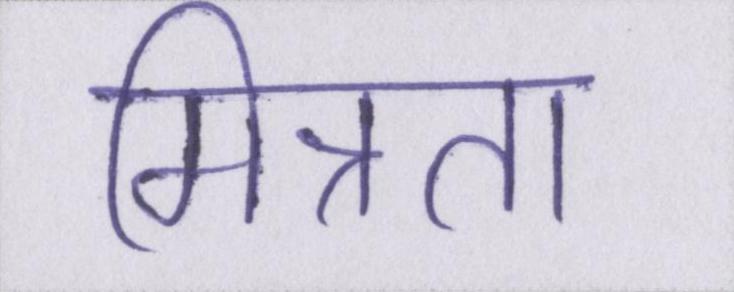 मित्रता